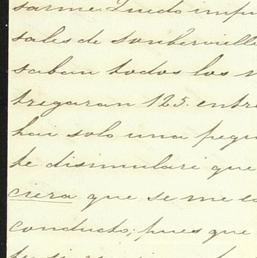 sarme. Quedo impu
sales de Sonbervielle
saban todos los v
tregaran 125. entre
hai solo una pequ
te disimulari que
ciera que se me co
conducto; pues que